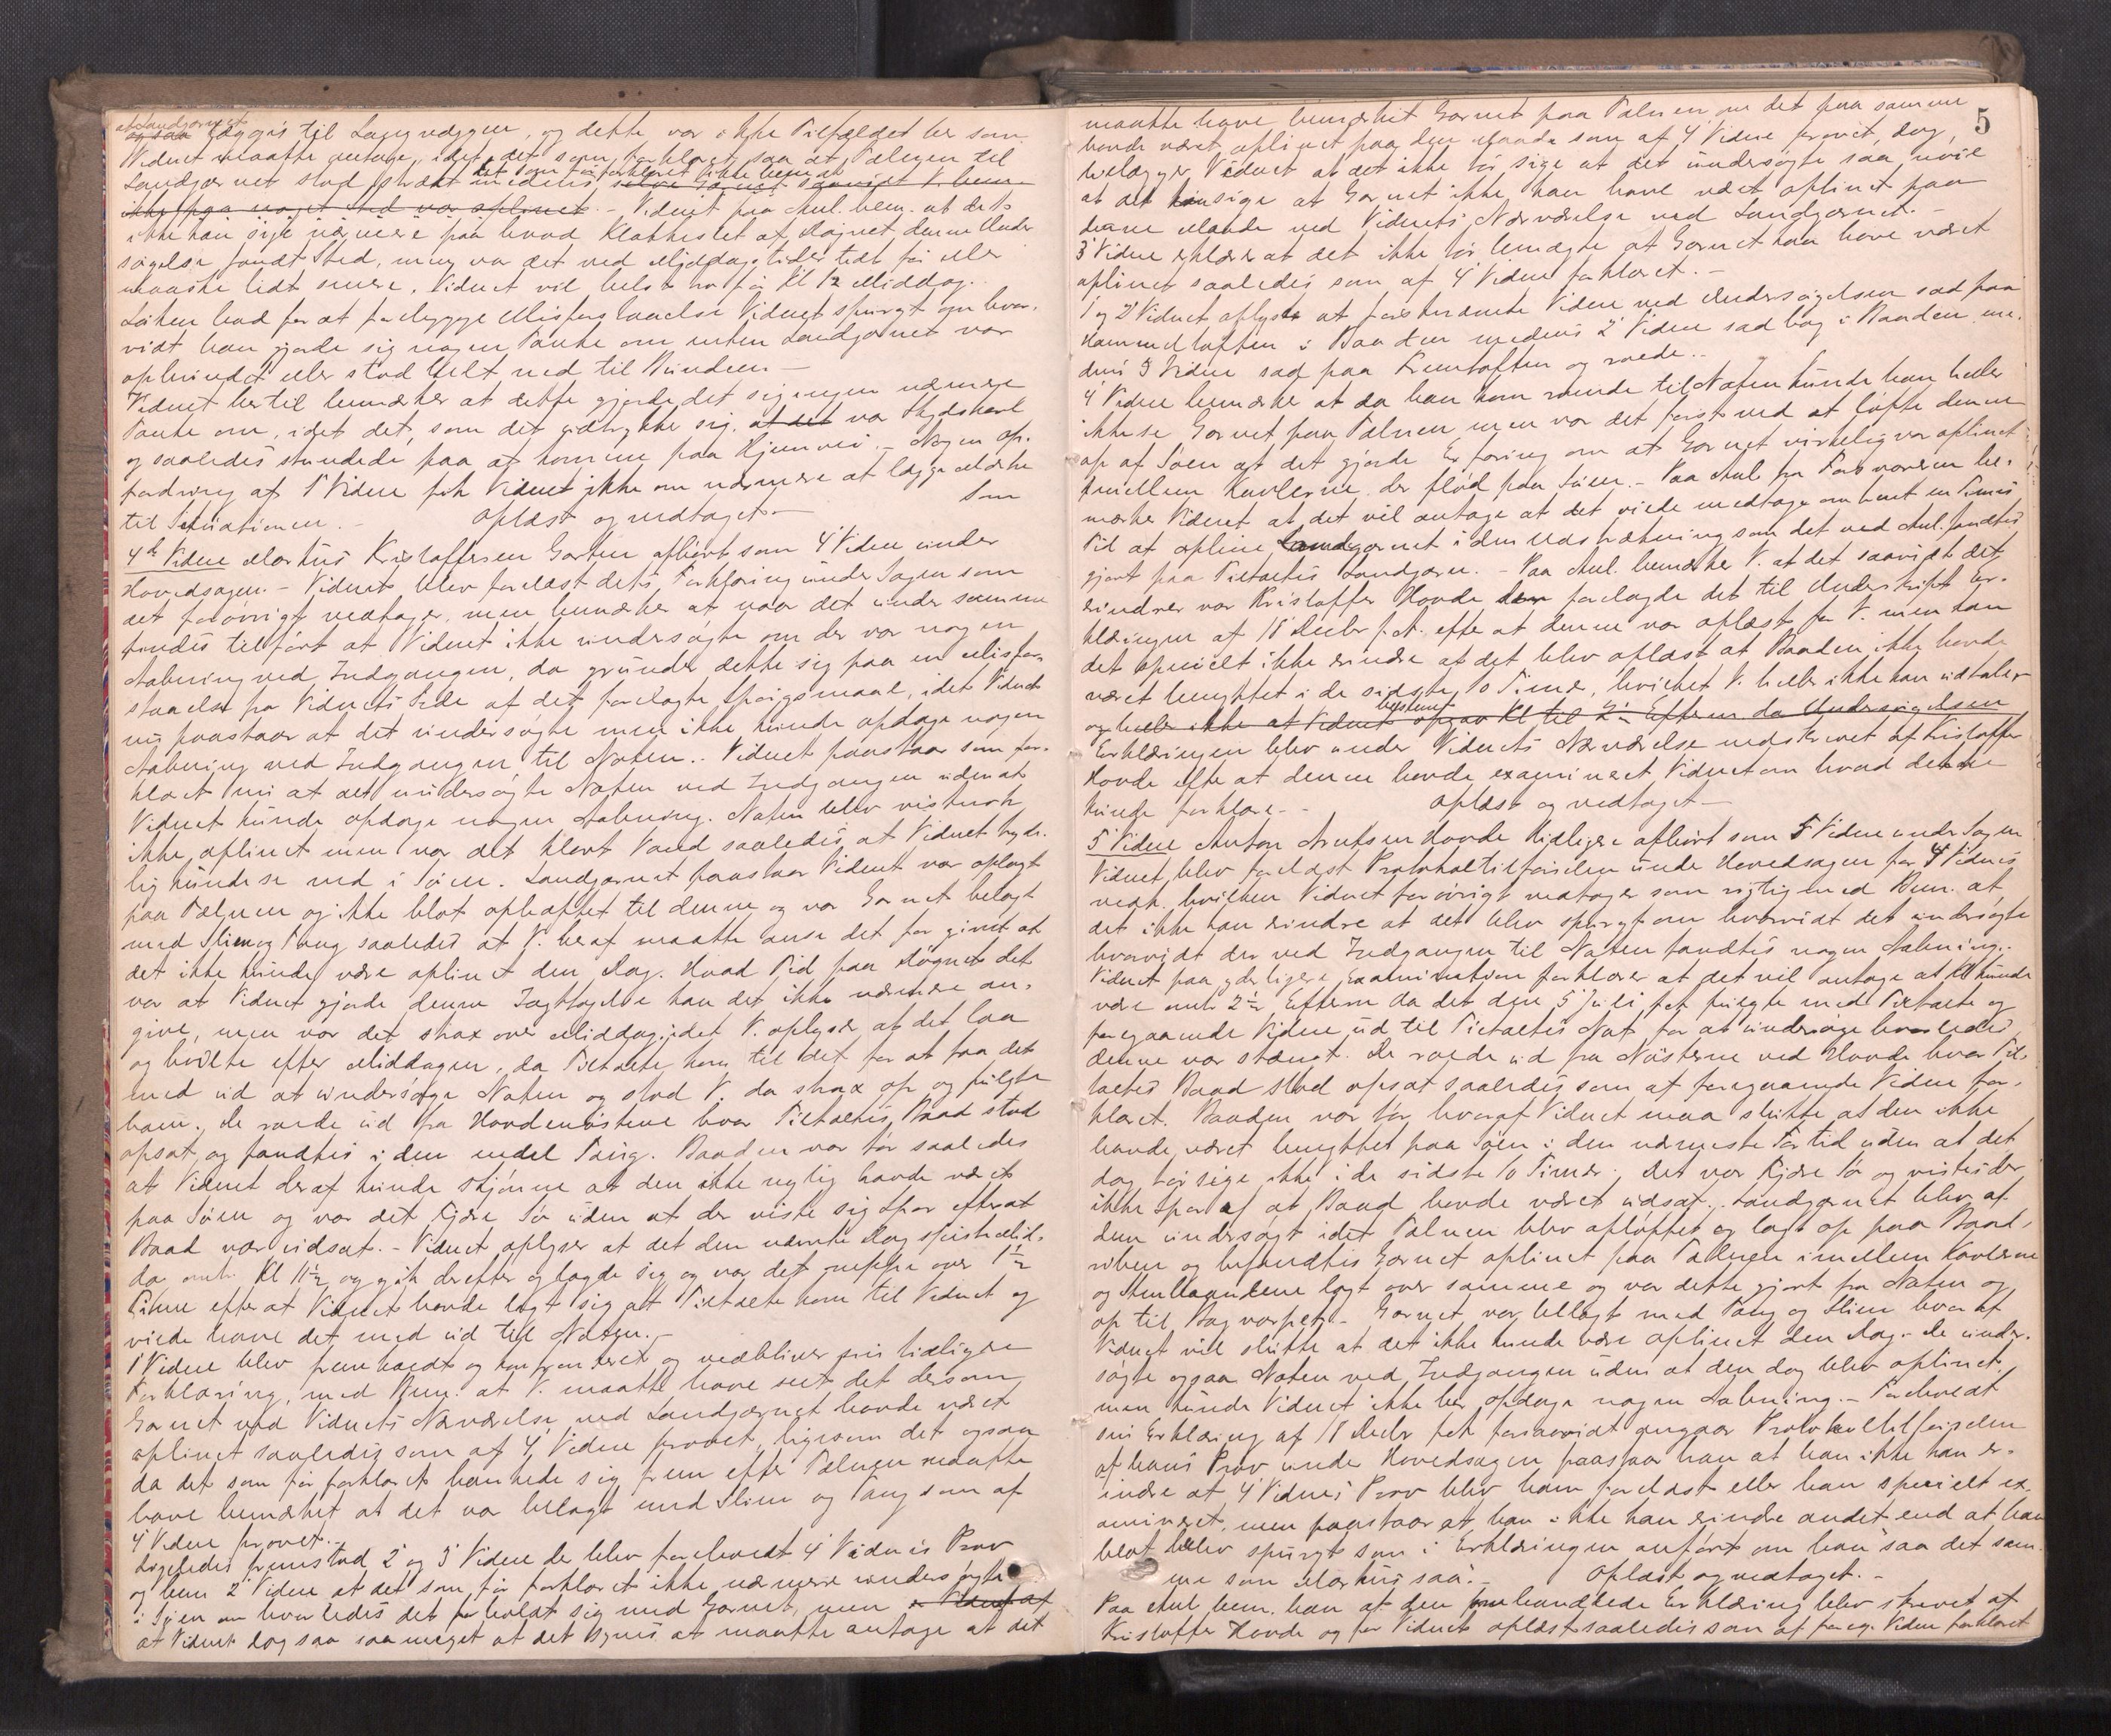 at Landgarnet
og saa lægges til Lagnvæggen, og dette var ikke Tilfældet her som
Vidnet maatte antage, idet det som forklaret saa at Tælnen til
Landgarnet stod strakt imedens det som før forklaret ikke bem. at selve Garnet saavidt V. bem.
ikke paa noget Sted var oplinet. - Vidnet paa Anl. bem. at det
ikke kan sige nærmere paa hvad Klokkeslet af Døgnet denne Under
søgelse fandt Sted, men var det ved Middagstider lidt før eller
maaske lidt senere. Vidnet vil helst tro før Kl 12 Middag.
Løken bad for at forebygge Misforstaaelse Vidnet spurgt om hvor-
vidt han gjorde sig nogen Tanke om enten Landgarnet var
opbundet eller stod helt ned til Bunden. -
Vidnet hertil bemærker at dette gjorde det sig ingen nærmere
Tanke om, idet det, som det udtrykker sig, at det var Skydskarl
og saaledes stundede paa at komme paa Hjemvei. - Nogen Op-
fordring af 1 Vidne fik Vidnet ikke om nærmere at lægge Mærke
til Situationen. - Oplæst og vedtaget. - Som
4de Vidne Markus Kristoffersen Gartun afhørt som 4 Vidne under
Hovedsagen. - Vidnet blev forelæst dets Forklaring under Sagen som
det forøvrigt vedtager, men bemærker at naar det under samme
findes tilført at Vidnet ikke undersøgte om der var nogen
Aabning ved Indgangen, da grunder dette sig paa en Misfor-
staaelse fra Vidnets Side af det forelagte Spørgsmaal, idet Vidnet
nu paastaar at det undersøgte men ikke kunde opdage nogen
Aabning ved Indgangen til Noten. - Vidnet paastaar som for-
klaret nu at det undersøgte Noten ved Indgangen uden at
Vidnet kunde opdage nogen Aabning. Noten blev vistnok
ikke oplinet men var det klart Vand saaledes at Vidnet tyde-
lig kunde se ned i Søen. Landgarnet paastaar Vidnet var oplagt
paa Tælnen og ikke blot ophæftet til denne og var Garnet belagt
med Slim og Tang saaledes at V. heraf maatte anse det for givet at
det ikke kunde være oplinet den Dag. Hvad Tid paa Døgnet det
var at Vidnet gjorde denne Iagttagelse kan det ikke nærmere an-
give, men var det strax over Middag, idet V. oplyser at det laa
og hvilte efter Middagen, da Tiltalte kom til det for at faa det
med ud at undersøge Noten og stod V. da strax op og fulgte
ham. De roede ud fra Hovdenøstene hvor Tiltaltes Baad stod
opsat, og fandtes i den endel Tang. Baaden var tør saaledes
at Vidnet deraf kunde skjønne at den ikke nylig havde været
paa Søen og var det Fjære Sø uden at der viste sig Spor efter at
Baad var udsat. - Vidnet oplyser at det den nævnte Dag spiste Mid-
da omtr. Kl 11½ og gik derefter og lagde sig og var det neppe over 1½
Time efter at Vidnet havde lagt sig at Tiltalte kom til Vidnet og
vilde have det med ud til Noten. -
1 Vidne blev fremkaldt og konfronteret og vedbliver sin tidligere
Forklaring, med Bem. at V. maatte have seet det dersom
Garnet ved Vidnets Nærværelse ved Landgarnet havde været
oplinet saaledes som af 4 Vidne provet, ligesom det ogsaa
da det som før forklaret hankede sig frem efter Tælnen maatte
have bemærket at det var belagt med Slim og Tang som af
4 Vidne provet. -
Ligeledes fremstod 2 og 3 Vidne der blev foreholdt 4 Vidnes Prov
og bem. 2 Vidne at det som før forklaret ikke nærmere undersøgte
i Søen om hvorledes det forholdt sig med Garnet, men Vidnet af
at Vidnet dog saa saa meget at det synes at maatte antage at det
5
maatte have bemærket Garnet paa Tælnen, om det paa samme
havde været oplinet paa den Maade som af 4 Vidne provet, dog
tillægger Vidnet at det ikke tør sige at det undersøgte saa nøie
at det kan sige at Garnet ikke kan have været oplinet paa
denne Maade ved Vidnets Nærværelse ved Landgarnet. -
3 Vidne erklærer at det ikke tør benægte at Garnet kan have været
oplinet saaledes som af 4 Vidne forklaret. -
1 og 2 Vidnet oplyste at førstnævnte Vidne ved Undersøgelsen sad paa
Kammeltoften i Baaden medens 2 Vidne sad bag i Baaden me-
dens 3 Vidne sad paa Fremtoften og roede. -
4 Vidne bemærker at da han kom roende til Noten kunde han heller
ikke se Garnet paa Tælnen men var det først ved at løfte denne
op af Søen at det gjorde Erfaring om at Garnet virkelig var oplinet
imellem Kavlerne der flød paa Søen. - Paa Anl. fra Forsvareren be-
mærker Vidnet at det vil antage at det vilde medtage omtrent en Times
Tid at opline Landgarnet i den Udstrækning som det ved Anl. fandtes
gjort paa Tiltaltes Landgarn. - Paa Anl. bemærker V. at det saavidt det
erindrer var Kristoffer Hovde der forelagde det til Underskrift Er-
klæringen af 18 Decbr f. A. efter at denne var oplæst for V. men kan
det specielt ikke erindre at det blev oplæst at Baaden ikke havde
været benyttet i de sidste 10 Timer, hvilket V. heller ikke kan udtale
og heller ikke at Vidnet bestemt opgav Kl til 2½ Efterm. da Undersøgelsen
Erklæringen blev under Vidnets Nærværelse nedskrevet af Kristoffer
Hovde efter at denne havde examineret Vidnet om hvad dette
kunde forklare. - Oplæst og vedtaget. -
5 Vidne Anton Knutsen Hovde tidligere afhørt som 5 Vidne under Sagen
Vidnet blev forelæst Protokoltilførselen under Hovedsagen for 4 Vidnes
vedk. hvilken Vidnet forøvrigt vedtager som rigtig med Bem. at
det ikke kan erindre at det blev spurgt om hvorvidt det undersøgte
hvorvidt der ved Indgangen til Noten fandtes nogen Aabning. -
Vidnet paa yderligere Examination forklarer at det vil antage at Kl kunde
være omtr. 2½ Efterm. da det den 5 Juli f.A. fulgte med Tiltalte og
foregaaende Vidne ud til Tiltaltes Not for at undersøge hvorledes
denne var stængt. De roede ud fra Nøsterne ved Hovde hvor Til-
taltes Baad stod opsat saaledes som af foregaaende Vidne for-
klaret. Baaden var tør, hvoraf Vidnet maa slutte at den ikke
havde været benyttet paa Søen i den nærmeste Fortid uden at det
dog tør sige ikke i de sidste 10 Timer. Det var Fjære Sø og vistes der
ikke Spor af at Baad havde været udsat. Landgarnet blev af
dem undersøgt idet Tælnen blev opløftet og lagt op paa Baad-
riben og befandtes Garnet oplinet paa Tælnen imellem Kavlerne
og Smellaandene lagt over samme og var dette gjort fra Noten og
op til Bagvarpet. - Garnet var belagt med Tang og Slim hvoraf
Vidnet vil slutte at det ikke kunde være oplinet den Dag. - De under-
søgte ogsaa Noten ved Indgangen uden at den dog blev oplinet,
men kunde Vidnet ikke her opdage nogen Aabning. - Foreholdt
sin Erklæring af 18 Decbr f.A. forsaavidt angaar Protokoltilførselen
af hans Prov under Hovedsagen paastaar han at han ikke kan er-
indre at 4 Vidnes Prov blev ham forelæst eller han specielt ex-
amineret, men paastaar at han ikke kan erindre andet end at han
blot blev spurgt som i Erklæringen anført om han saa det sam-
me som Markus saa. - Oplæst og vedtaget. -
Paa Anl. bem. han at den omhandlede Erklæring blev skrevet af
Kristoffer Hovde og for Vidnet oplæst saaledes som af foreg. Vidne forklaret